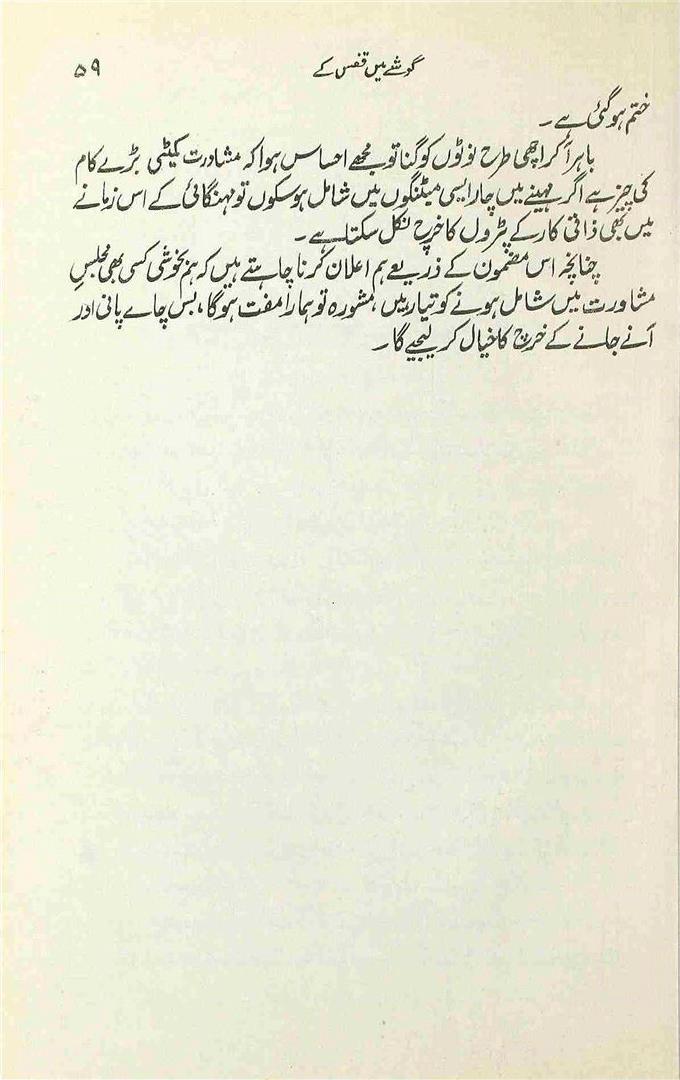 گوشے میں قفس کے ۵۹
ختم ہو گئی ہے۔
باہر آ کر اچھی طرح نوٹوں کو گنا تو مجھے احساس ہوا کہ مشاورت کمیٹی بڑے کام
کی چیز ہے اگر مہینے میں چار ایسی میٹنگوں میں شامل ہو سکوں تو مہنگائی کے اس زمانے
میں بھی ذاتی کار کے پٹرول کا خرچ نکل سکتا ہے۔
چنانچہ اس مضمون کے ذریعے ہم اعلان کرنا چاہتے ہیں کہ ہم بخوشی کسی بھی مجلسِ
مشاورت میں شامل ہونے کو تیار ہیں، مشورہ تو ہمارا مفت ہوگا، بس چاے پانی اور
آنے جانے کے خرچ کا خیال کر لیجیے گا۔